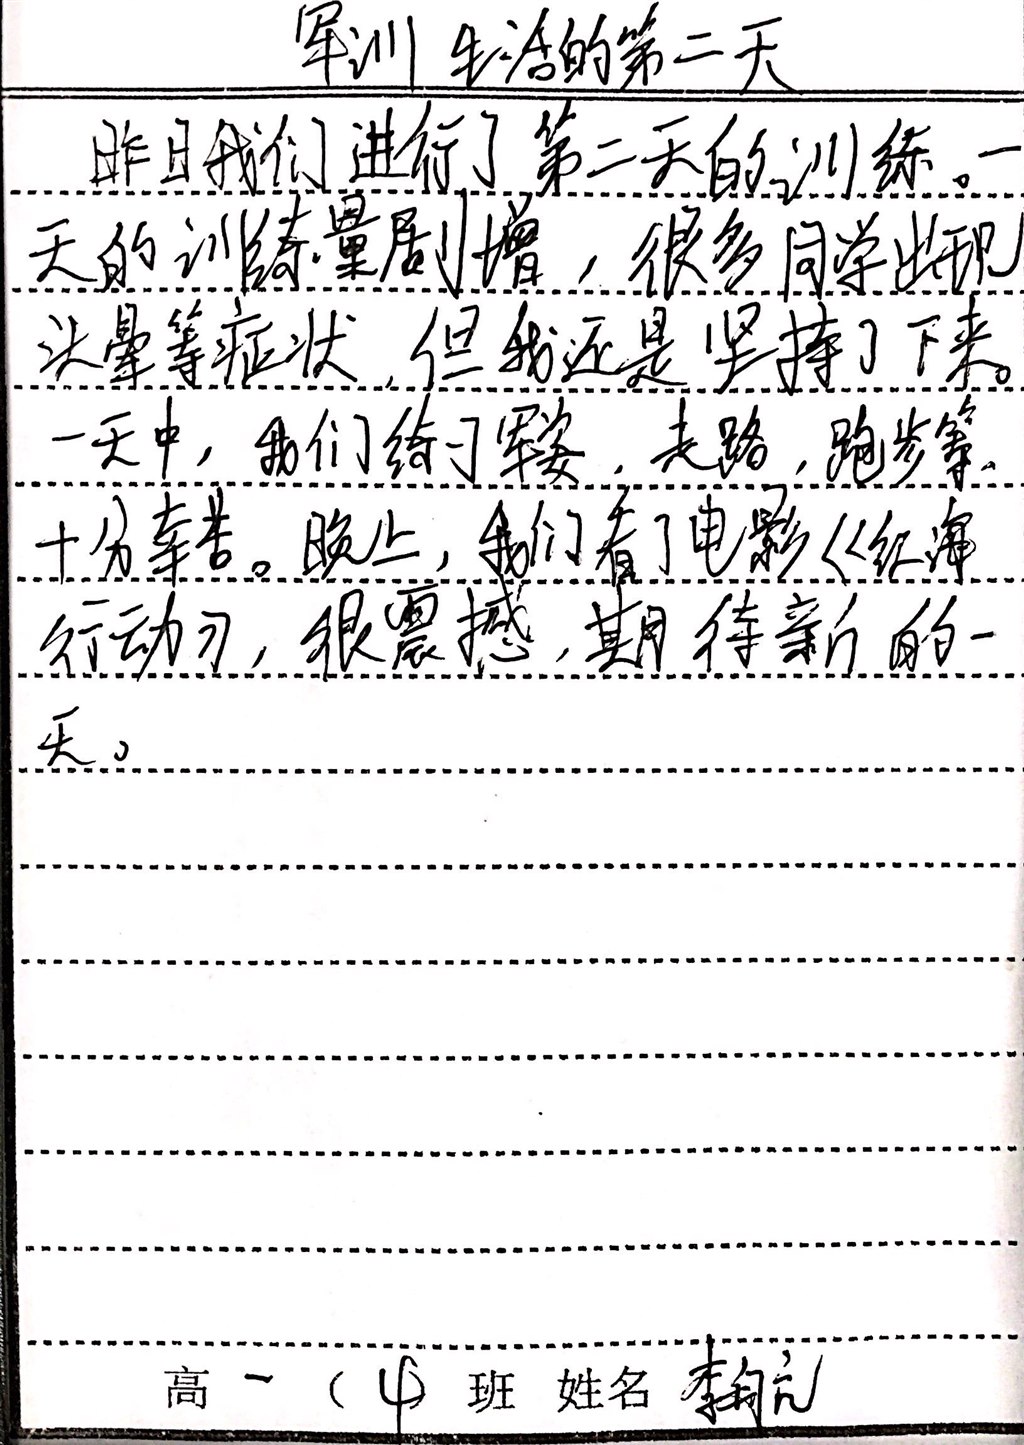 军训生活的第二天
昨日我们进行了第二天的训练。一
天的训练量剧增，很多同学出现
头晕等症状，但我还是坚持了下来。
一天中，我们练习军姿，走路，跑步等，
十分辛苦。晚上，我们看了电影《红海
行动》，很震撼，期待新的一
天。
高一（4）班 姓名 李